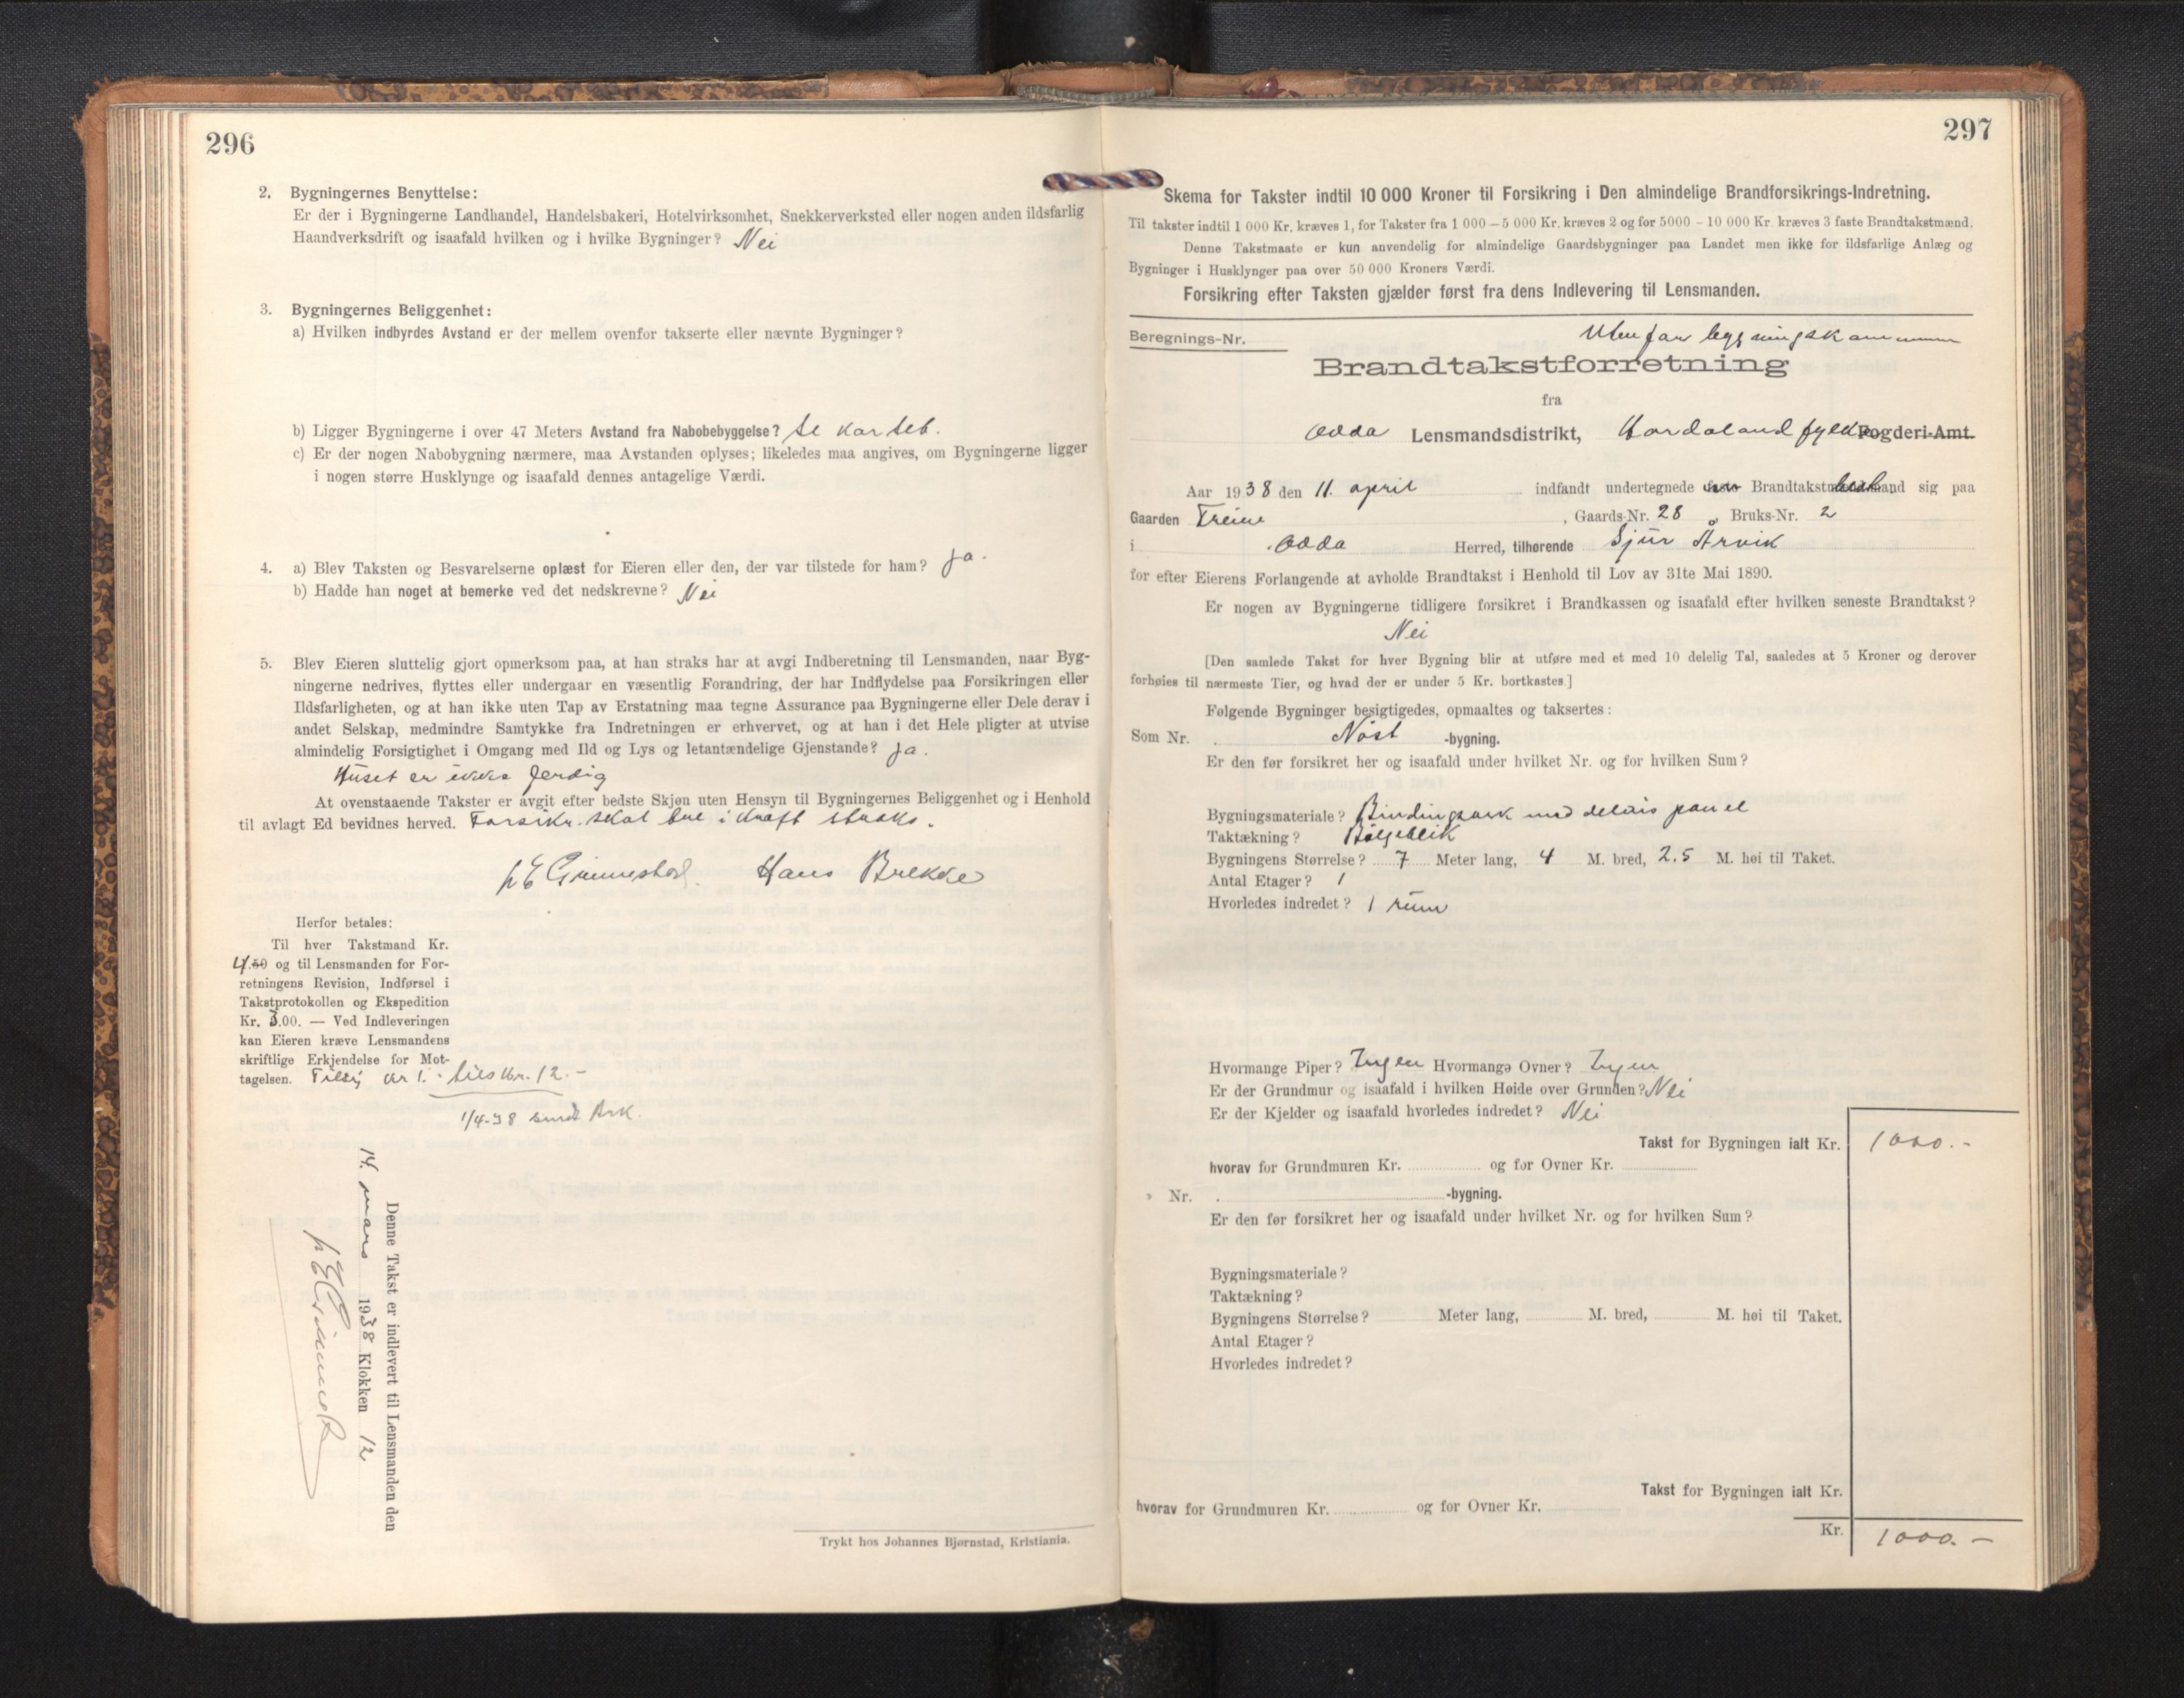 296
2. Bygningernes Benyttelse:
Er der i Bygningerne Landhandel, Handelsbakeri, Hotelvirksomhet, Snekkerverksted eller nogen anden ildsfarlig
Haandverksdrift og isaafald hvilken og i hvilke Bygninger? Nei
3. Bygningernes Beliggenhet:
a) Hvilken indbyrdes Avstand er der mellem ovenfor takserte eller nævnte Bygninger?
b) Ligger Bygningerne i over 47 Meters Avstand fra Nabobebyggelse? Se kartet.
c) Er der nogen Nabobygning nærmere, maa Avstanden oplyses; likeledes maa angives, om Bygningerne ligger
i nogen større Husklynge og isaafald dennes antagelige Værdi.
4. a) Blev Taksten og Besvarelserne oplæst for Eieren eller den, der var tilstede for ham? Ja.
b) Hadde han noget at bemerke ved det nedskrevne? Nei
5. Blev Eieren sluttelig gjort opmerksom paa, at han straks har at avgi Indberetning til Lensmanden, naar Byg-
ningerne nedrives, flyttes eller undergaar en væsentlig Forandring, der har Indflydelse paa Forsikringen eller
Ildsfarligheten, og at han ikke uten Tap av Erstatning maa tegne Assurance paa Bygningerne eller Dele derav i
andet Selskap, medmindre Samtykke fra Indretningen er erhvervet, og at han i det Hele pligter at utvise
almindelig Forsigtighet i Omgang med Ild og Lys og letantændelige Gjenstande? Ja.
Huset er ikke ferdig
At ovenstaaende Takster er avgit efter bedste Skjøn uten Hensyn til Bygningernes Beliggenhet og i Henhold
til avlagt Ed bevidnes herved. Forsikr. skal tre i kraft straks.
Grimestad. Hans Brekke
Herfor betales:
Til hver Takstmand Kr.
4.50 og til Lensmanden for For-
retningens Revision, Indførsel i
Takstprotokollen og Ekspedition
Kr. 3.00. — Ved Indleveringen
kan Eieren kræve Lensmandens
skriftlige Erkjendelse for Mot-
tagelsen. kr 1.- kr. 12.-
1/4-38 sendt Brk.
Denne Takst er indlevert til Lensmanden den
14. mars 1938 Klokken 12
Trykt hos Johannes Bjørnstad, Kristiania.
297
Skema for Takster indtil 10 000 Kroner til Forsikring i Den almindelige Brandforsikrings-Indretning.
Til takster indtil 1 000 Kr. kræves 1, for Takster fra 1 000 – 5 000 Kr. kræves 2 og for 5000 – 10 000 Kr. kræves 3 faste Brandtakstmænd.
Denne Takstmaate er kun anvendelig for almindelige Gaardsbygninger paa Landet men ikke for ildsfarlige Anlæg og
Bygninger i Husklynger paa over 50 000 Kroners Værdi.
Forsikring efter Taksten gjælder først fra dens Indlevering til Lensmanden.
Beregnings-Nr. Utenfor bygningskommune
Brandtakstforretning
fra
Odda Lensmandsdistrikt, Hordaland fylke Fogderi-Amt.
Aar 1938 den 11. april indfandt undertegnede faste Brandtakstmænd sig paa
Gaarden Freim, Gaards-Nr. 28, Bruks-Nr. 2
i Odda Herred, tilhørende Sjur Årvik
for efter Eierens Forlangende at avholde Brandtakst i Henhold til Lov av 31te Mai 1890.
Er nogen av Bygningerne tidligere forsikret i Brandkassen og isaafald efter hvilken seneste Brandtakst?
Nei
[Den samlede Takst for hver Bygning blir at utføre med et med 10 delelig Tal, saaledes at 5 Kroner og derover
forhøies til nærmeste Tier, og hvad der er under 5 Kr. bortkastes.]
Følgende Bygninger besigtigedes, opmaaltes og taksertes:
Som Nr. . Nøst -bygning.
Er den før forsikret her og isaafald under hvilket Nr. og for hvilken Sum?
Bygningsmateriale? Bindingsverk med panel
Taktækning? Bølgeblik
Bygningens Størrelse? 7 Meter lang, 4 M. bred, 2.5 M. høi til Taket.
Antal Etager? 1
Hvorledes indredet? 1 rum
Hvormange Piper? Ingen Hvormange Ovner? Ingen
Er der Grundmur og isaafald i hvilken Høide over Grunden? Nei
Er der Kjelder og isaafald hvorledes indredet? Nei
Takst for Bygningen ialt Kr. 1000.-
hvorav for Grundmuren Kr. og for Ovner Kr.
» Nr. . -bygning.
Er den før forsikret her og isaafald under hvilket Nr. og for hvilken Sum?
Bygningsmateriale?
Taktækning?
Bygningens Størrelse? Meter lang, M. bred, M. høi til Taket.
Antal Etager?
Hvorledes indredet?
Takst for Bygningen ialt Kr.
hvorav for Grundmuren Kr. og for Ovner Kr.
Kr. 1000.-